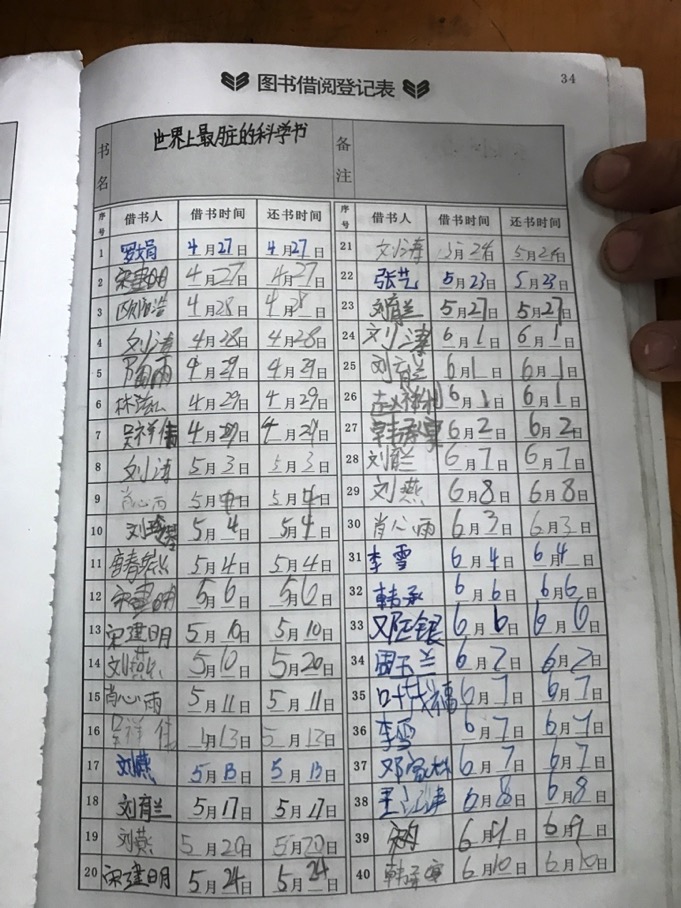 34
图书借阅登记表
书名 世界上最脏的科学书 备注
序号 借书人 借书时间 还书时间
1 罗娟 4月27日 4月27日
2 宋建明 4月27日 4月27日
3 4月28日 4月28日
4 刘涛 4月28日 4月28日
5 陶雨 4月29日 4月29日
6 林 4月29日 4月29日
7 吴祥倩 4月29日 4月29日
8 刘涛 5月3日 5月3日
9 肖心雨 5月4日 5月4日
10 刘 5月4日 5月4日
11 5月4日 5月4日
12 宋建明 5月6日 5月6日
13 宋建明 5月10日 5月10日
14 刘燕 5月10日 5月20日
15 肖心雨 5月11日 5月11日
16 吴祥 月13日 5月13日
17 刘燕 5月13日 5月13日
18 刘育兰 5月17日 5月17日
19 刘燕 5月20日 5月20日
20 宋建明 5月24日 5月24日
序号 借书人 借书时间 还书时间
21 刘涛 5月24日 5月24日
22 张艺 5月23日 5月23日
23 刘育兰 5月27日 5月27日
24 刘 6月1日 6月1日
25 刘育兰 6月1日 6月1日
26 6月1日 6月1日
27 韩承 6月2日 6月2日
28 刘育兰 6月7日 6月7日
29 刘燕 6月8日 6月8日
30 肖心雨 6月3日 6月3日
31 李雪 6月4日 6月4日
32 韩承 6月6日 6月6日
33 邓银 6月6日 6月6日
34 周玉兰 6月2日 6月2日
35 叶成福 6月7日 6月7日
36 李雪 6月7日 6月7日
37 邓 6月7日 6月7日
38 王江涛 6月8日 6月8日
39 6月9日 6月9日
40 韩承 6月10日 6月10日